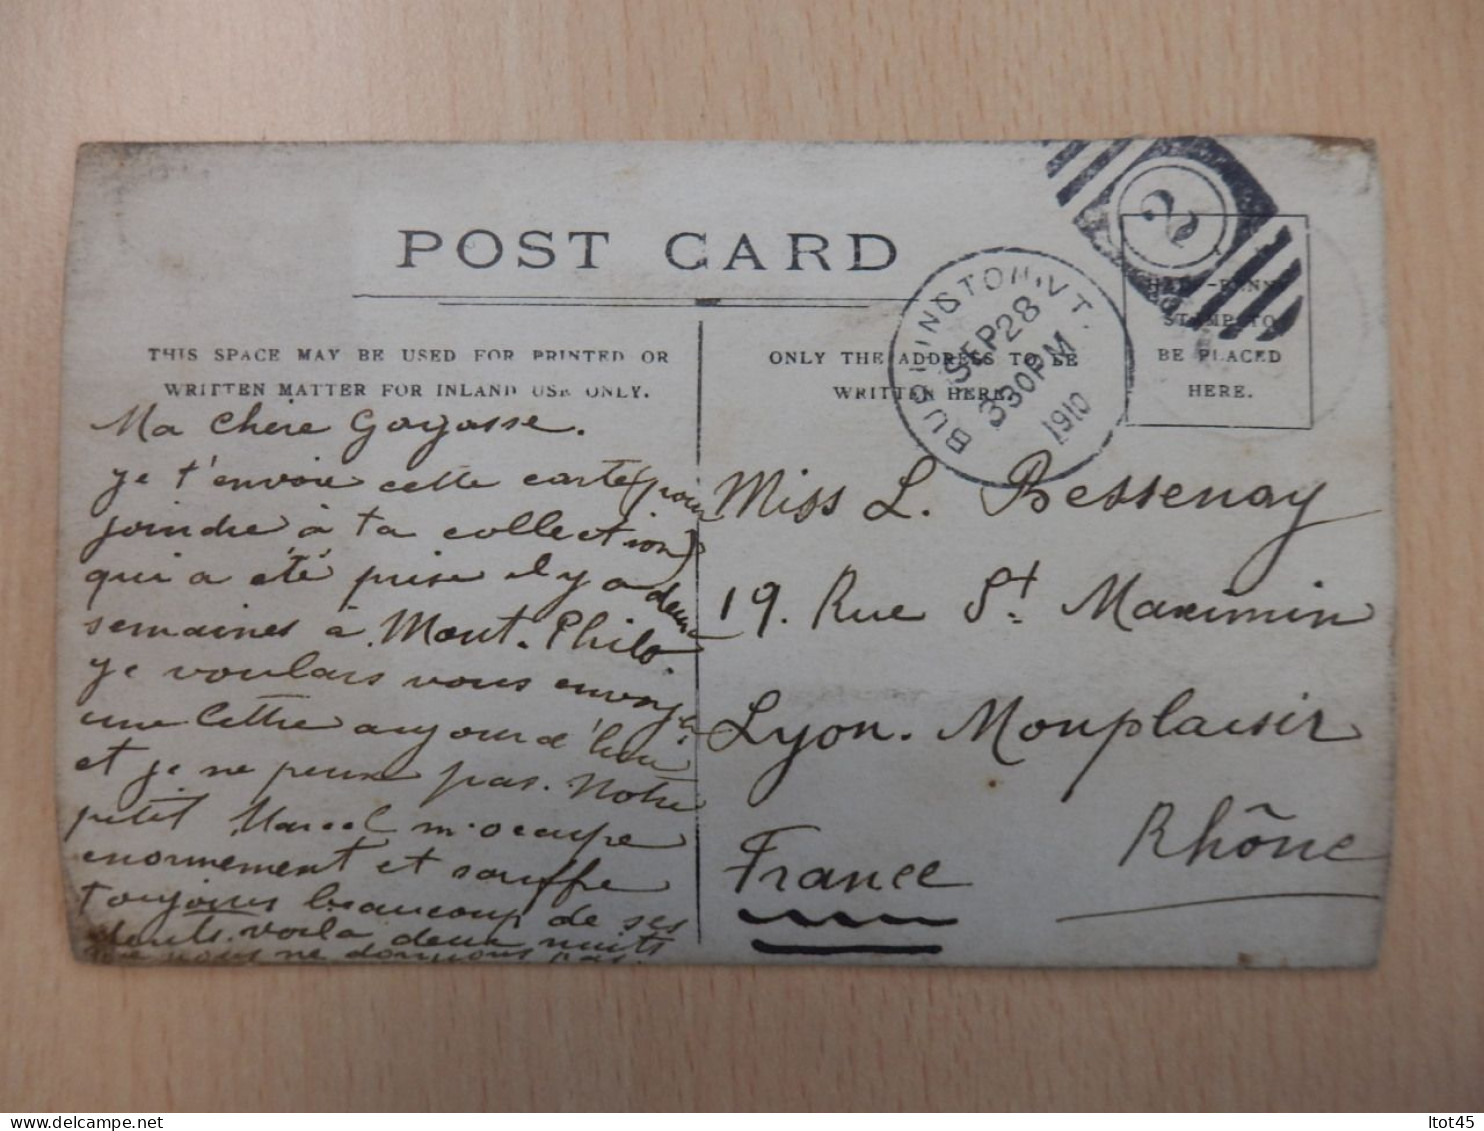 POST CARD
THIS SPACE MAY BE USED FOR PRINTED OR
WRITTEN MATTER FOR INLAND USE ONLY.
Ma chère Gogasse.
je t'envoie cette carte (pour
joindre à ta collection)
qui a été prise il y a deux
semaines à Mont-Philo.
je voulais vous envoyer
une lettre aujourd'hui
et je ne peux pas. Notre
petit Marcel m'occupe
enormement et souffre
toujours beaucoup de ses
dents. voila deux nuits
que nous ne dormons pas.
ONLY THE ADDRESS TO BE
WRITTEN HERE.
BURLINGTON, VT.
SEP 28
3 30 PM
1910
2
HALF-PENNY
STAMP TO
BE PLACED
HERE.
Miss L. Bessenay
19. Rue St. Maximin
Lyon. Monplaisir
Rhône
France
ltot45